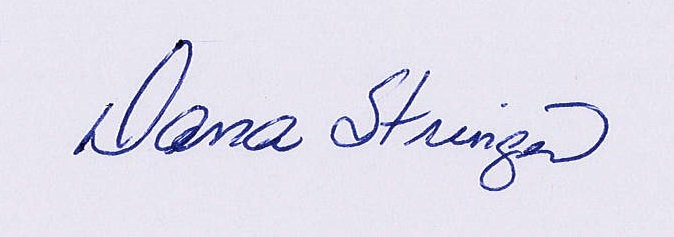 Dana Stringer